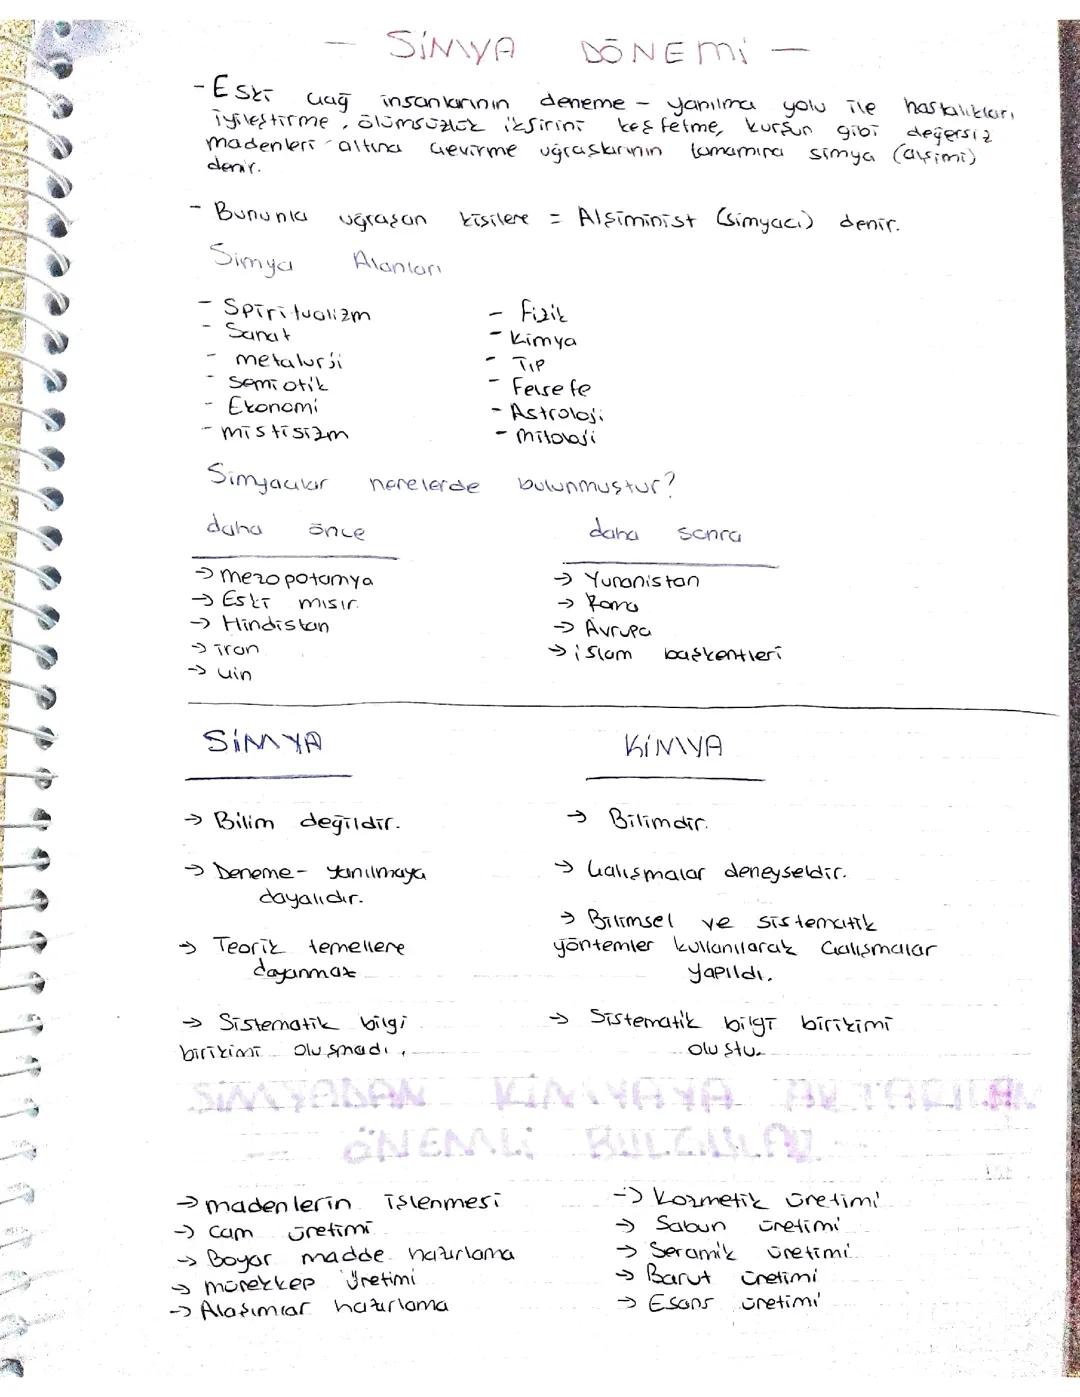 — SİMYA DÖNEMİ —
- Eski çağ insanlarının deneme - yanılma yolu ile hastalıkları
iyileştirme, ölümsüzlük iksirini keşfetme, kurşun gibi değersiz
madenleri altına çevirme uğraşlarının tamamına simya (alşimi)
denir.
- Bununla uğraşan kişilere = Alşiminist (simyacı) denir.
Simya Alanları
- Spiritualizm
- Sanat
- metalurji
- semiotik
- Ekonomi
- mistisizm
- Fizik
- Kimya
- Tıp
- Felsefe
- Astroloji
- mitoloji
Simyacılar nerelerde bulunmuştur?
daha önce
→ mezopotamya
→ Eski mısır
→ Hindistan
→ iran
→ Çin
daha sonra
→ Yunanistan
→ Roma
→ Avrupa
→ islam başkentleri
SİMYA
→ Bilim değildir.
→ Deneme - yanılmaya
dayalıdır.
→ Teorik temellere
dayanmaz
→ Sistematik bilgi
birikimi oluşmadı.
KİMYA
→ Bilimdir.
→ Çalışmalar deneyseldir.
→ Bilimsel ve sistematik
yöntemler kullanılarak Çalışmalar
yapıldı.
→ Sistematik bilgi birikimi
oluştu.
SİMYADAN KİMYAYA AKTARILAN
-- ÖNEMLİ BULGULAR --
→ madenlerin işlenmesi
→ cam üretimi
→ Boyar madde hazırlama
→ mürekkep üretimi
→ Alaşımlar hazırlama
→ Kozmetik üretimi
→ Sabun üretimi
→ Seramik üretimi
→ Barut üretimi
→ Esans üretimi